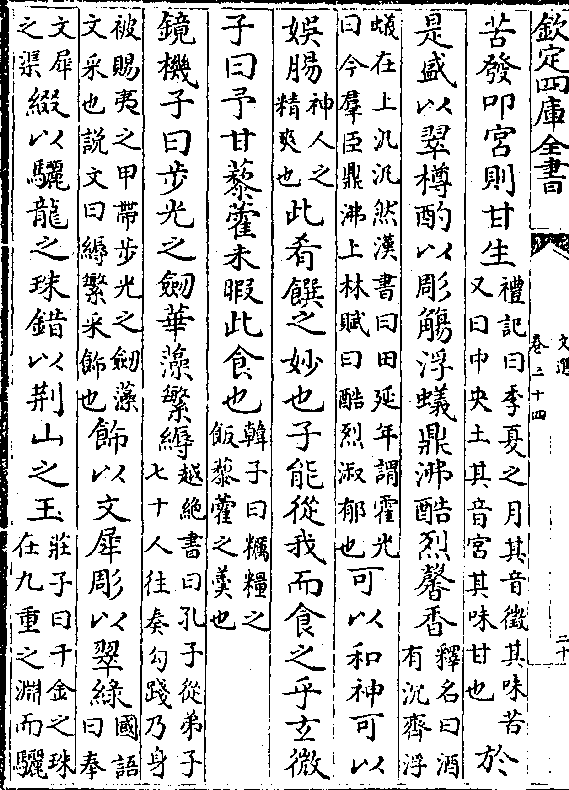 欽定四庫全書
文選
卷三十四
二十
苦發叩宮則甘生禮記曰季夏之月其音徵其味苦又曰中央土其音宮其味甘也於
是盛以翠樽酌以彫觴浮蟻鼎沸酷烈馨香釋名曰酒有沉齊浮
蟻在上汎汎然漢書曰田延年謂霍光曰今羣臣鼎沸上林賦曰酷烈淑郁也可以和神可以
娛腸神人之精爽也此肴饌之妙也子能從我而食之乎玄微
子曰予甘藜藿未暇此食也韓子曰糲糧之飯藜藿之羹也
鏡機子曰步光之劒華藻繁縟越絶書曰孔子從弟子七十人往奏勾踐乃身
被賜夷之甲帶步光之劒藻文采也說文曰縟繁采飾也飾以文犀彫以翠綠國語曰奉
文犀之渠綴以驪龍之珠錯以荆山之玉莊子曰千金之珠在九重之淵而驪